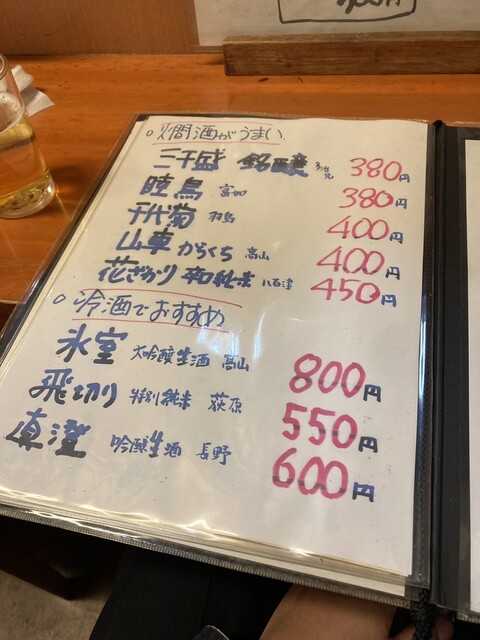 ○燗酒がうまい
三千盛 銘醸 多治見 380円
睦鳥 富加 380円
千代菊 羽島 400円
山車 からくち 高山 400円
花ざかり 和純米 八百津 450円
○冷酒でおすすめ
氷室 大吟醸生酒 高山 800円
飛切り 特別純米 萩原 550円
真澄 吟醸生酒 長野 600円